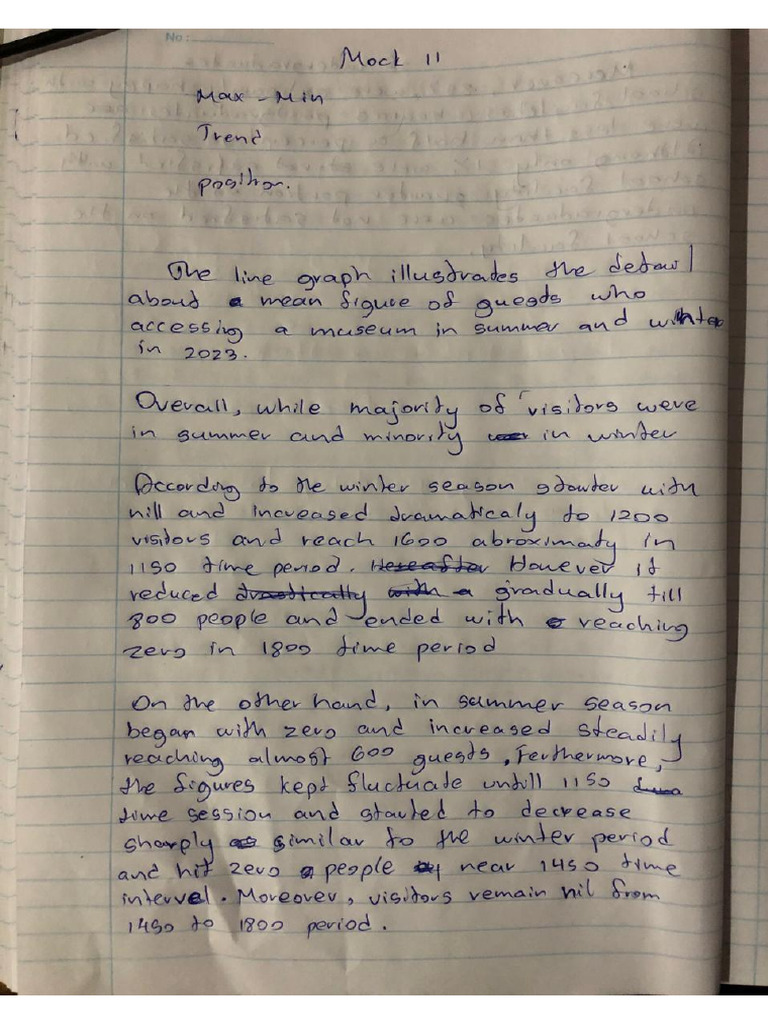 No:
Mock 11
Max - Min
Trend
position.
The line graph illustrades the detail
about a mean figure of guests who
accessing a museum in summer and winter
in 2023.
Overall, while majority of visitors were
in summer and minority in winter
According to the winter season starter with
nill and increased dramaticaly to 1200
visitors and reach 1600 abroximaty in
1150 time period. Hereafter However it
reduced drastically with a gradually till
800 people and ended with reaching
zero in 1800 time period
On the other hand, in summer season
began with zero and increased steadily
reaching almost 600 guests, Ferthermore,
the figures kept fluctuate untill 1150
time session and started to decrease
sharply similar to the winter period
and hit zero people near 1450 time
intervel. Moreover, visitors remain nil from
1450 to 1800 period.